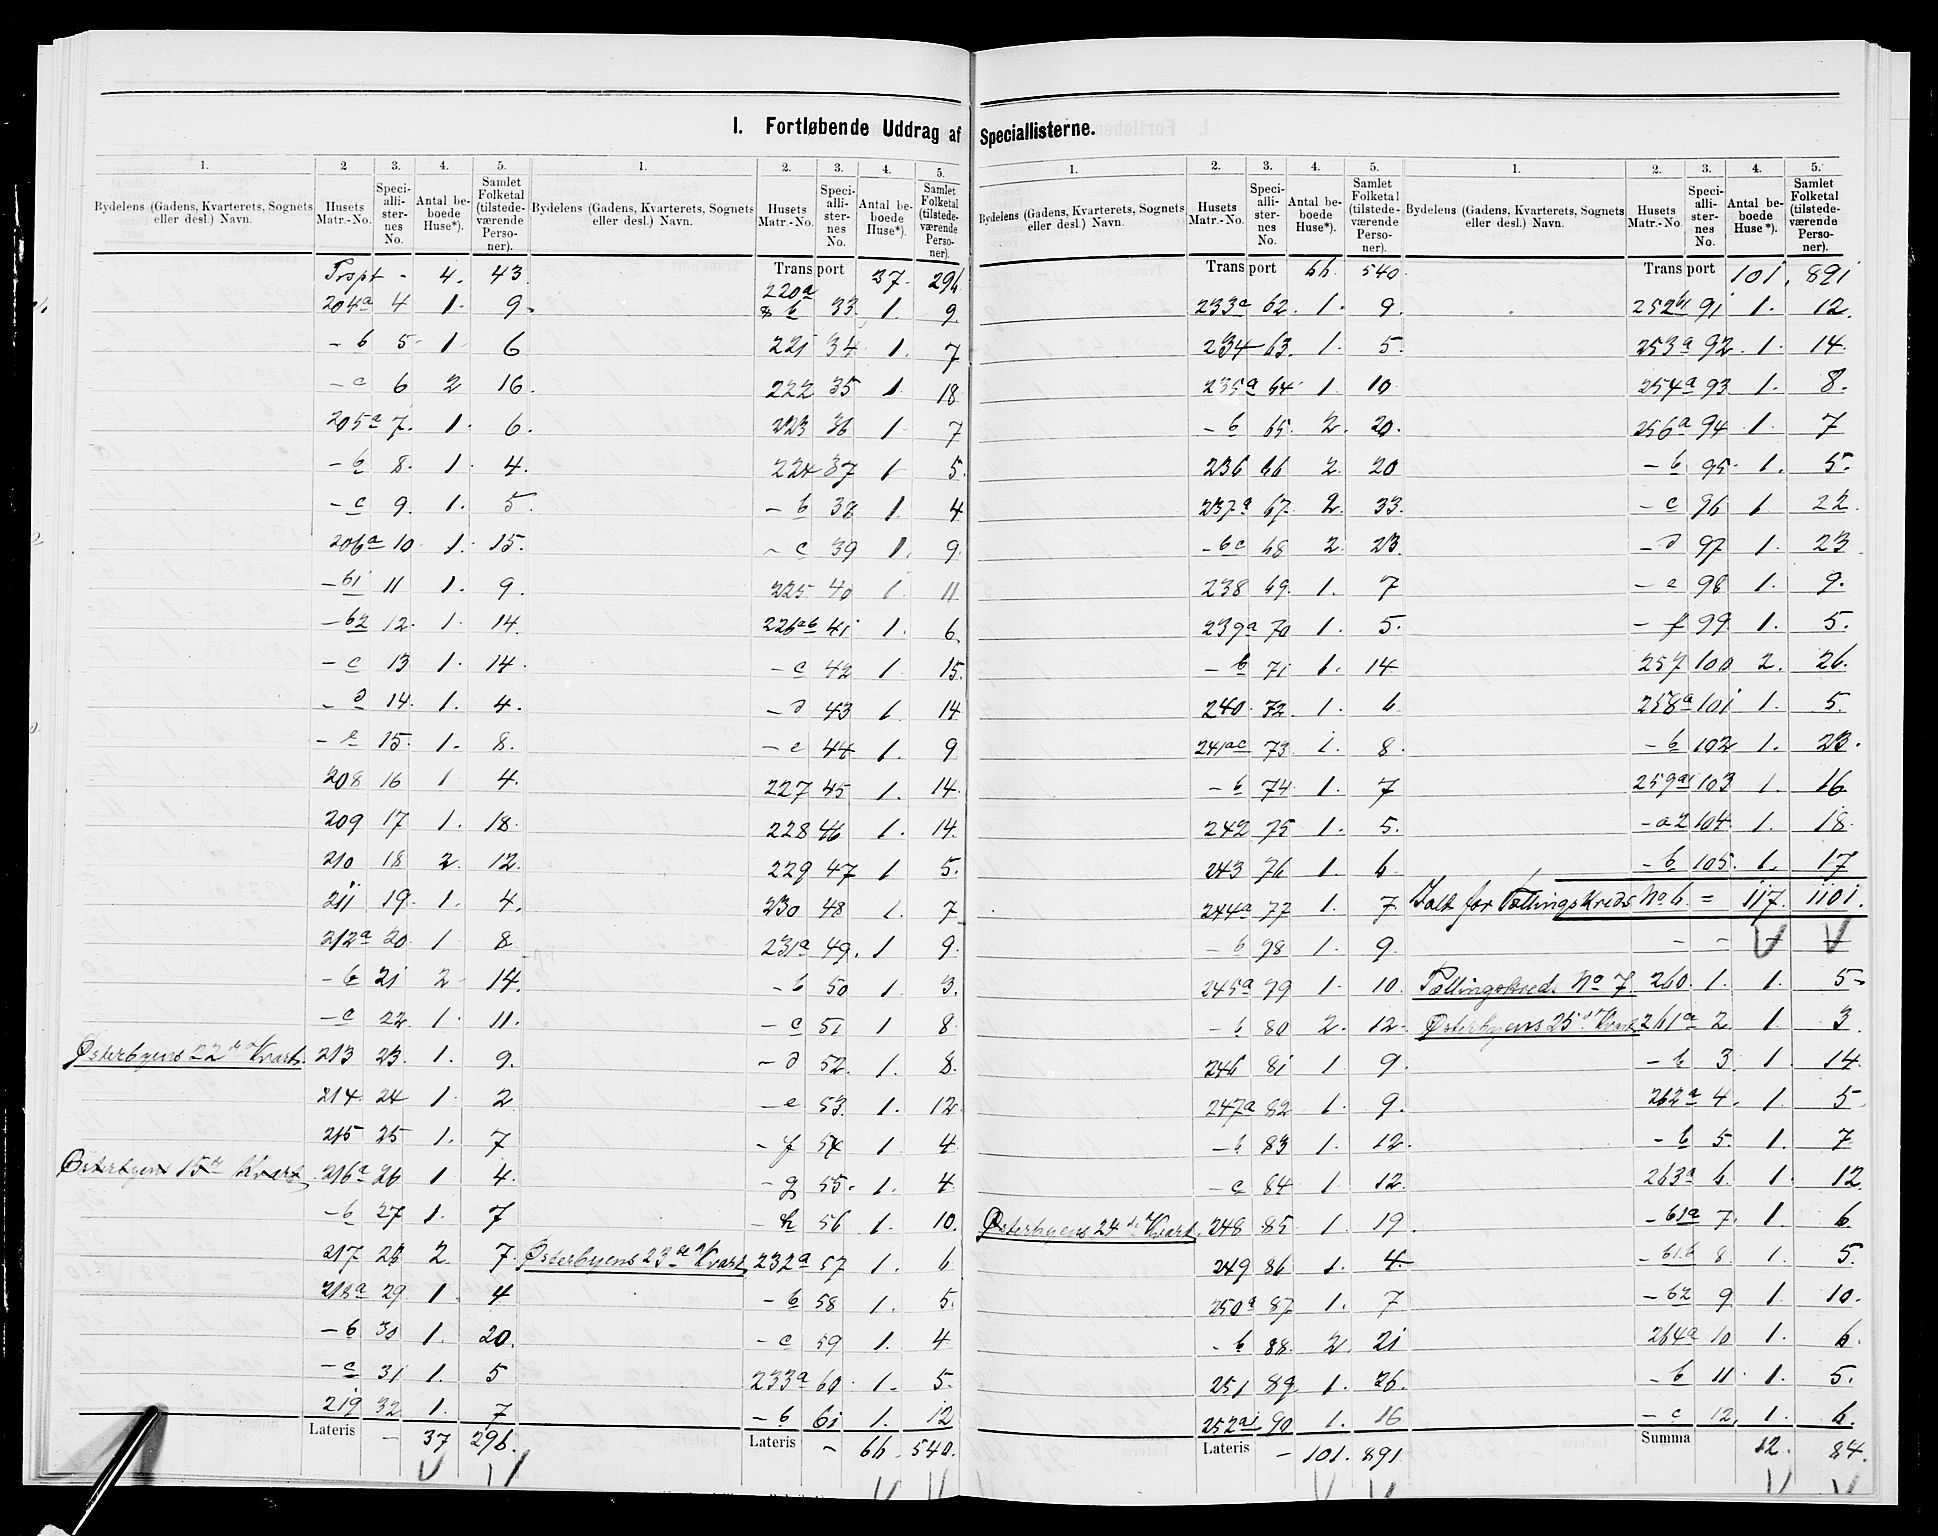 I. Fortløbende Uddrag af Speciallisterne.
1. 2 3. 4. 5.
Bydelens (Gadens, Kvarterets, Sognets eller desl.) Navn. Husets Matr.-No. Speciallisternes No. Antal beboede Huse*). Samlet Folketal (tilstedeværende Personer).
Trspt - 4. 43.
204a 4 1. 9.
- b 5 1 6
- c 6 2 16.
205a 7. 1. 6.
- b 8. 1. 4.
- c 9. 1. 5.
206a 10 1. 15.
- b1 11 1. 9.
- b2 12. 1. 14.
- c 13 1. 14.
- d 14. 1. 4.
- e 15. 1. 8.
208 16 1 4.
209 17 1. 18.
210 18 2. 12.
211 19. 1. 4.
212a 20. 1 8
- b 21 2 14.
- c 22. 1. 11.
Østerbyens 22de Kvart. 213 23. 1. 9.
214 24 1. 2
215 25 1. 7
Østerbyens 15de Kvart. 216a 26 1 4.
- b 27 1. 7
217 28 2. 7.
218a 29 1. 4
- b 30 1. 20.
- c 31 1. 5
219 32 1. 7
Lateris - 37 296.
1. 2. 3. 4. 5.
Bydelens (Gadens, Kvarterets, Sognets eller desl.) Navn. Husets Matr.-No. Speciallisternes No. Antal beboede Huse*). Samlet Folketal (tilstedeværende Personer).
Transport 37. 296
220a
& b 33 1. 9
221 34 1. 7
222 35 1. 18
223 36 1 7
224 37 1 5.
- b 38 1. 4
- c 39 1. 9.
225 40 1 11
226ab 41 1. 6.
- c 42 1. 15.
- d 43 1. 14
- e 44 1. 9
227 45 1. 14.
228 46 1. 14.
229 47 1 5.
230 48 1. 7
231a 49. 1 9.
- b 50 1 3.
- c 51 1 8.
- d 52. 1. 8.
- e 53. 1. 12.
- f 54 1 4
- g 55. 1. 4
- h 56 1. 10.
Østerbyens 23de Kvart. 232a 57 1. 6
- b 58 1. 5.
- c 59 1. 4
233a 60 1. 5.
- b 61 1. 12
Lateris - 66. 540.
1. 2. 3. 4. 5.
Bydelens (Gadens, Kvarterets, Sognets eller desl.) Navn. Husets Matr.-No. Speciallisternes No. Antal beboede Huse*). Samlet Folketal (tilstedeværende Personer).
Transport 66. 540.
233c 62. 1. 9.
234 63. 1. 5.
235a 64 1 10
- b 65. 2. 20.
236 66 2. 20
237a 67. 2. 33.
- bc 68 2. 23.
238 69. 1. 7
239a 70 1. 5.
- b 71 1. 14
240. 72. 1. 6
241ac 73. 1. 8.
- b 74 1. 7
242 75 1. 5.
243 76 1. 6.
244a 77 1. 7
- b 98 1. 9.
245a 79 1. 10.
- b 80 2. 12.
246 81 1 9.
247a 82 1. 9.
- b 83 1. 12.
- c 84 1 12.
Østerbyens 24de Kvart. 248 85 1. 19.
249 86 1. 4
250a 87 1. 7
- b 88. 2. 21
251 89 1. 26.
252a1 90 1. 16
Lateris - 101. 891
1. 2. 3. 4. 5.
Bydelens (Gadens, Kvarterets, Sognets eller desl.) Navn. Husets Matr.-No. Speciallisternes No. Antal beboede Huse*). Samlet Folketal (tilstedeværende Personer).
Transport 101. 891
252b1 91 1. 12.
253a 92. 1. 14.
254a 93 1. 8.
256a 94 1. 7
- b 95. 1. 5.
- c 96 1 22.
- d 97 1. 23
- e 98 1. 9.
- f 99. 1. 5.
257 100 2. 26.
258a 101 1. 5.
- b 102 1. 23.
259a1 103 1. 16
- a2 104. 1. 18.
- b 105. 1. 17
Ialt for Tællingskreds No 6. = 117. 1101.
- -
Tællingskreds No 7. 260. 1. 1. 5
Østerbyens 25de Kvart. 261a 2. 1. 3.
- b 3. 1. 14.
262a 4. 1. 5
- b 5. 1. 7
263a 6. 1. 12
- b1a 7. 1. 6
- b1b 8. 1. 5.
- b2 9. 1. 10.
264a 10 1. 6.
- b 11 1. 5.
- c 12. 1. 6.
Summa 12. 84.